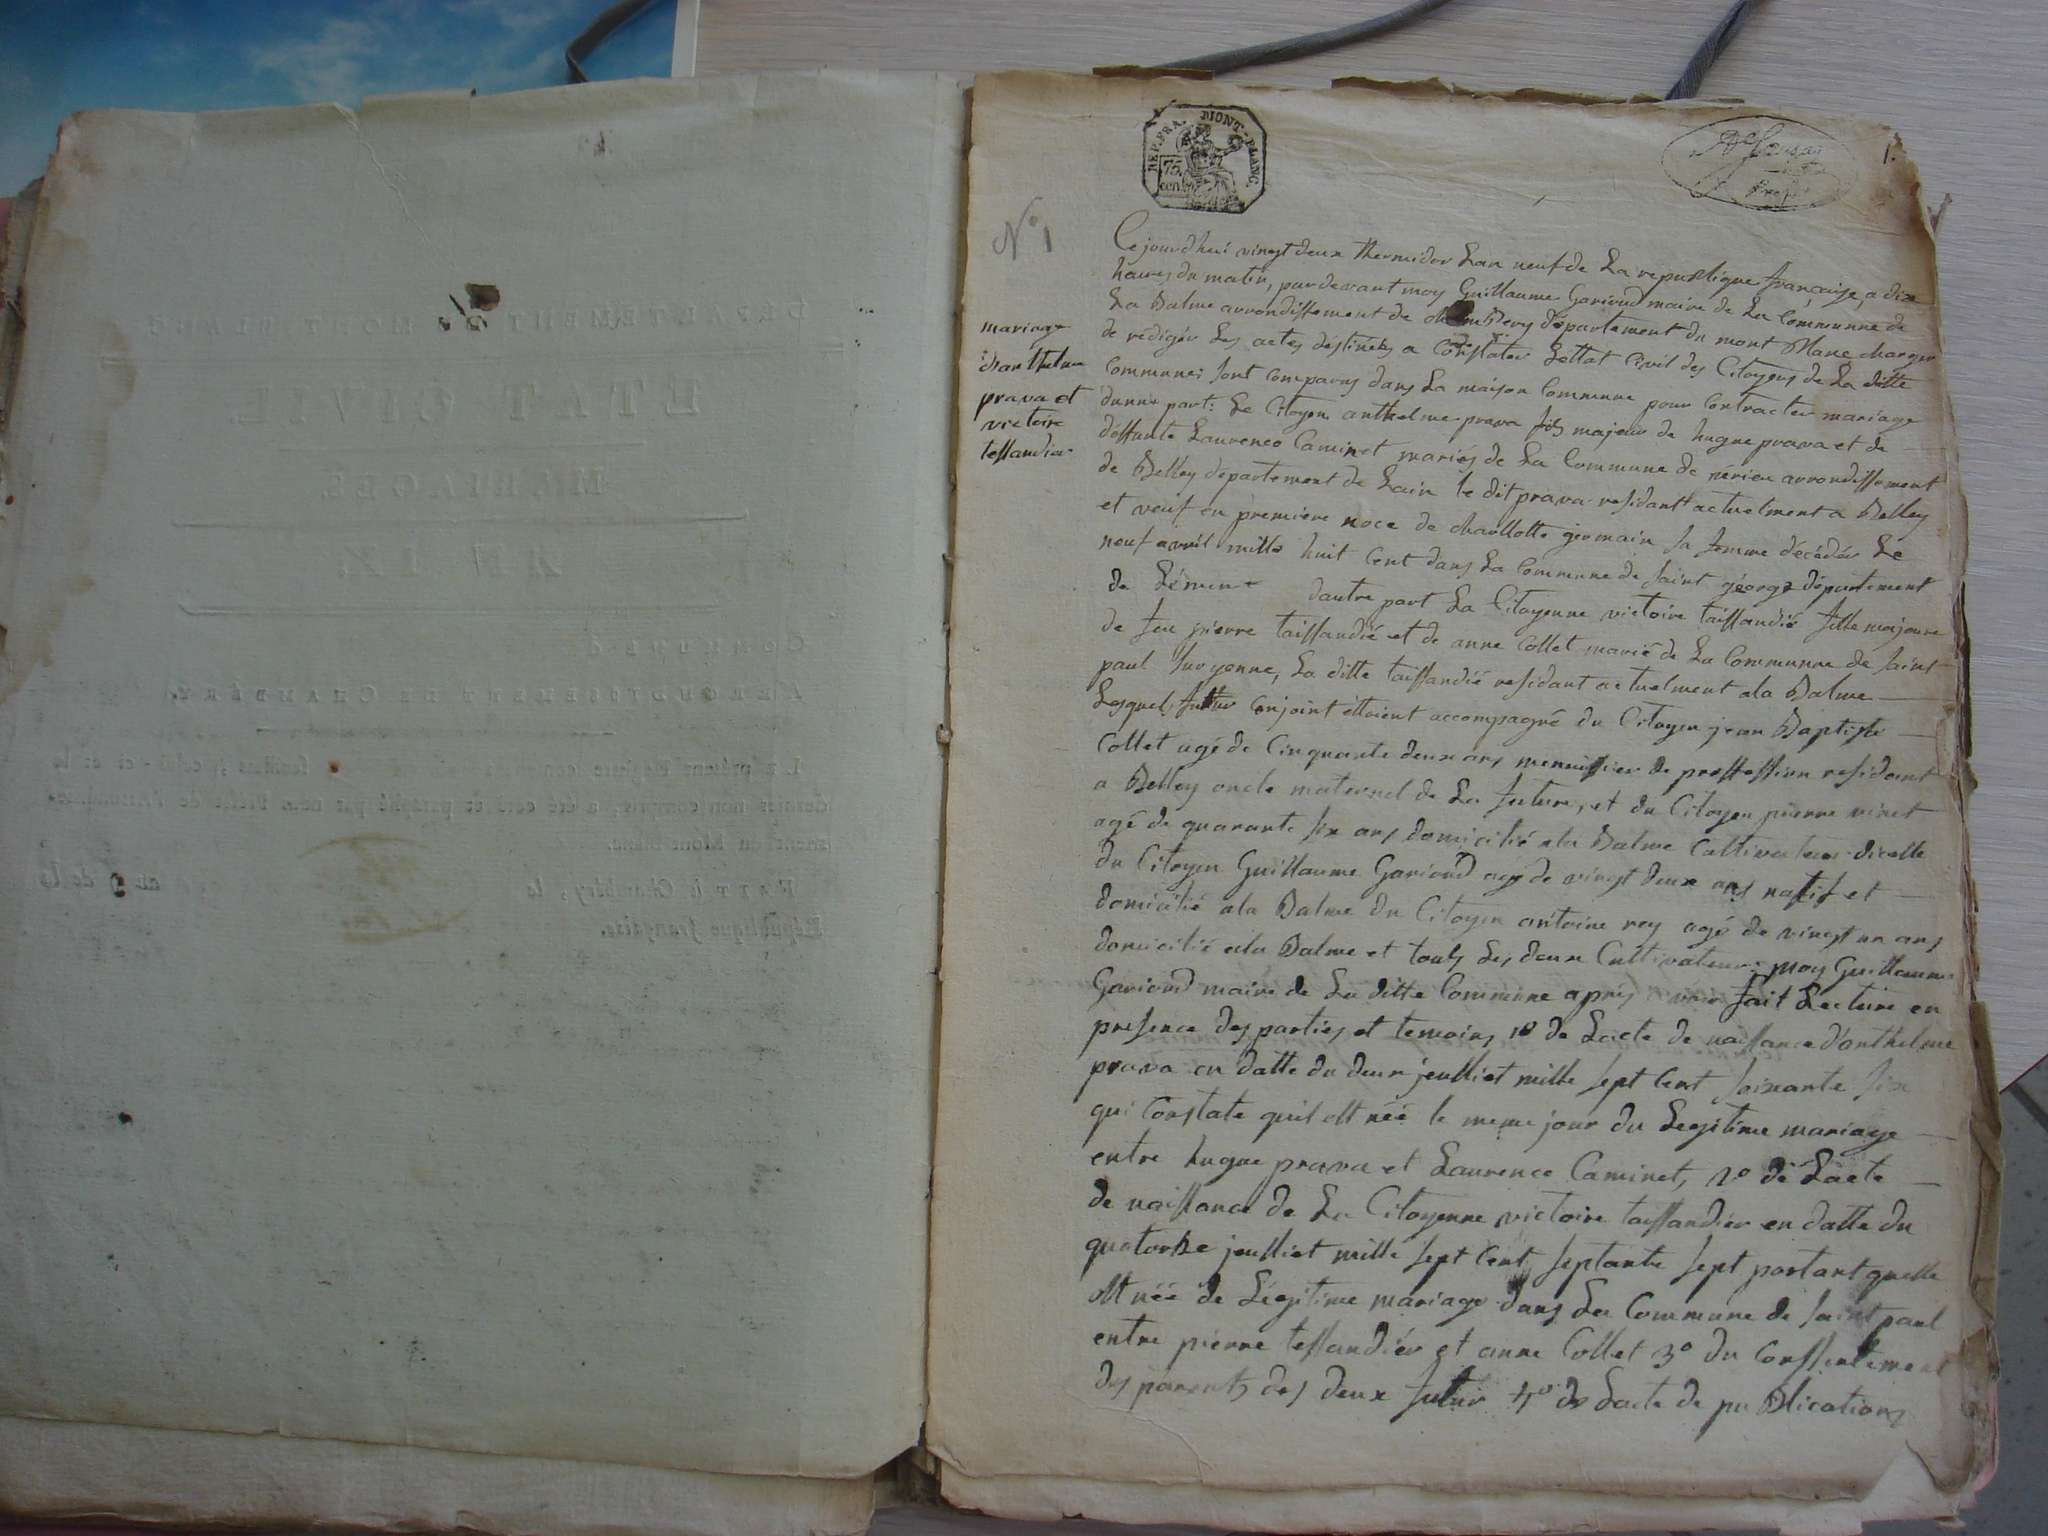 DEPARTEMENT DU MONT-BLANC.
ETAT CIVIL
MARIAGES
AN IX.
COMMUNE d
ARRONDISSEMENT DE CHAMBÉRY.
LE présent Registre contenant feuillets, celui-ci et le
dernier non compris, a été coté et paraphé par nous Préfet du Département
du Mont-Blanc.
FAIT à Chambéry, le an 9 de la
République française.
REP. FRA. MONT-BLANC.
75
cent.
1.
N° 1
mariage
danthelme
prava et
victoire
tessandier
Cejourdhui vingt deux thermidor Lan neuf de La republique française, a dix
heures du matin, pardevant moy Guillaume Garioud maire de La Communne de
La Balme arrondissement de chambery département du mont Blanc charger
de rediger Les actes destinés a Constater Lettat Civil des Citoyens de La ditte
Commune; sont comparus dans La maison Commune pour Contracter mariage
dunne part: Le Citoyen anthelme prava fils majeur de hugue prava et de
deffunte Laurence Caminet mariés de La Commune de arrondissement
de Belley departement de Lain le dit prava residant actuelment a Belley
et veuf en première noce de charllotte germain sa femme décédée Le
neuf avril mille huit Cent dans La Commune de saint george département
de Léman dautre part La Citoyenne victoire taissandié fille majeure
de feu pierre taissandié et de anne Collet marié de La Communne de saint
paul sur yenne, La ditte taissandié residant actuelment ala Balme
Lesquel futur Conjoint éttoient accompagné du Citoyen jean Baptiste
Collet agé de Cinquante deux ans menuisier de proffession residant
a Belley oncle maternel de La future, et du Citoyen pierre vinet
agé de quarante six ans domicilié ala Balme Cultivateur dicelle
du Citoyen Guillaume Garioud agé de vingt deux ans natif et
domicilié ala Balme du Citoyen antoine rey agé de vingt un ans
domicilié ala Balme et touts Les deux Cultivateurs moy Guillaume
Gariond maire de La ditte Commune après avoir fait Lecture en
presence des parties et temoins 1° de Lacte de naissance d'anthelme
prava en datte du deux jeulliet mille sept Cent soixante six
qui Constate quil est née le meme jour du Legitime mariage
entre hugue prava et Laurence Caminet, 2° de Lacte
de naissance de La Citoyenne victoire taissandier en datte du
quatorze jeulliet mille sept Cent septante sept portant quelle
est née de Légitime mariage dans La Commune de saint paul
entre pierre tessandier et anne Collet 3° du Conssentement
des parents des deux futur 4° de Lacte de publications